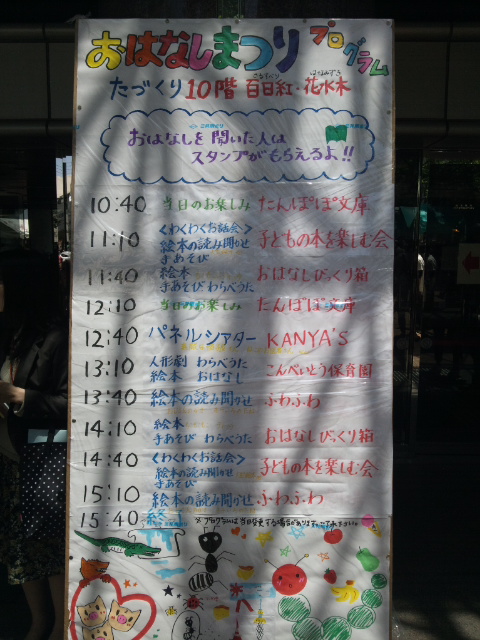 おはなしまつり プログラム
たづくり10階 百日紅・花水木
さるすべり はなみずき
おはなしを聞いた人は
スタンプがもらえるよ!!
10:40 当日のお楽しみ たんぽぽ文庫
11:10 <わくわくお話会> 絵本の読み聞かせ 手あそび 子どもの本を楽しむ会
11:40 絵本 手あそび わらべうた おはなしびっくり箱
12:10 当日のお楽しみ たんぽぽ文庫
12:40 パネルシアター KANYA'S
13:10 人形劇 わらべうた 絵本 おはなし こんぺいとう保育園
13:40 絵本の読み聞かせ ふわふわ
14:10 絵本 手あそび わらべうた おはなしびっくり箱
14:40 <わくわくお話会> 絵本の読み聞かせ 手あそび 子どもの本を楽しむ会
15:10 絵本の読み聞かせ ふわふわ
15:40
※プログラムは当日変更する場合があります。ご了承ください。